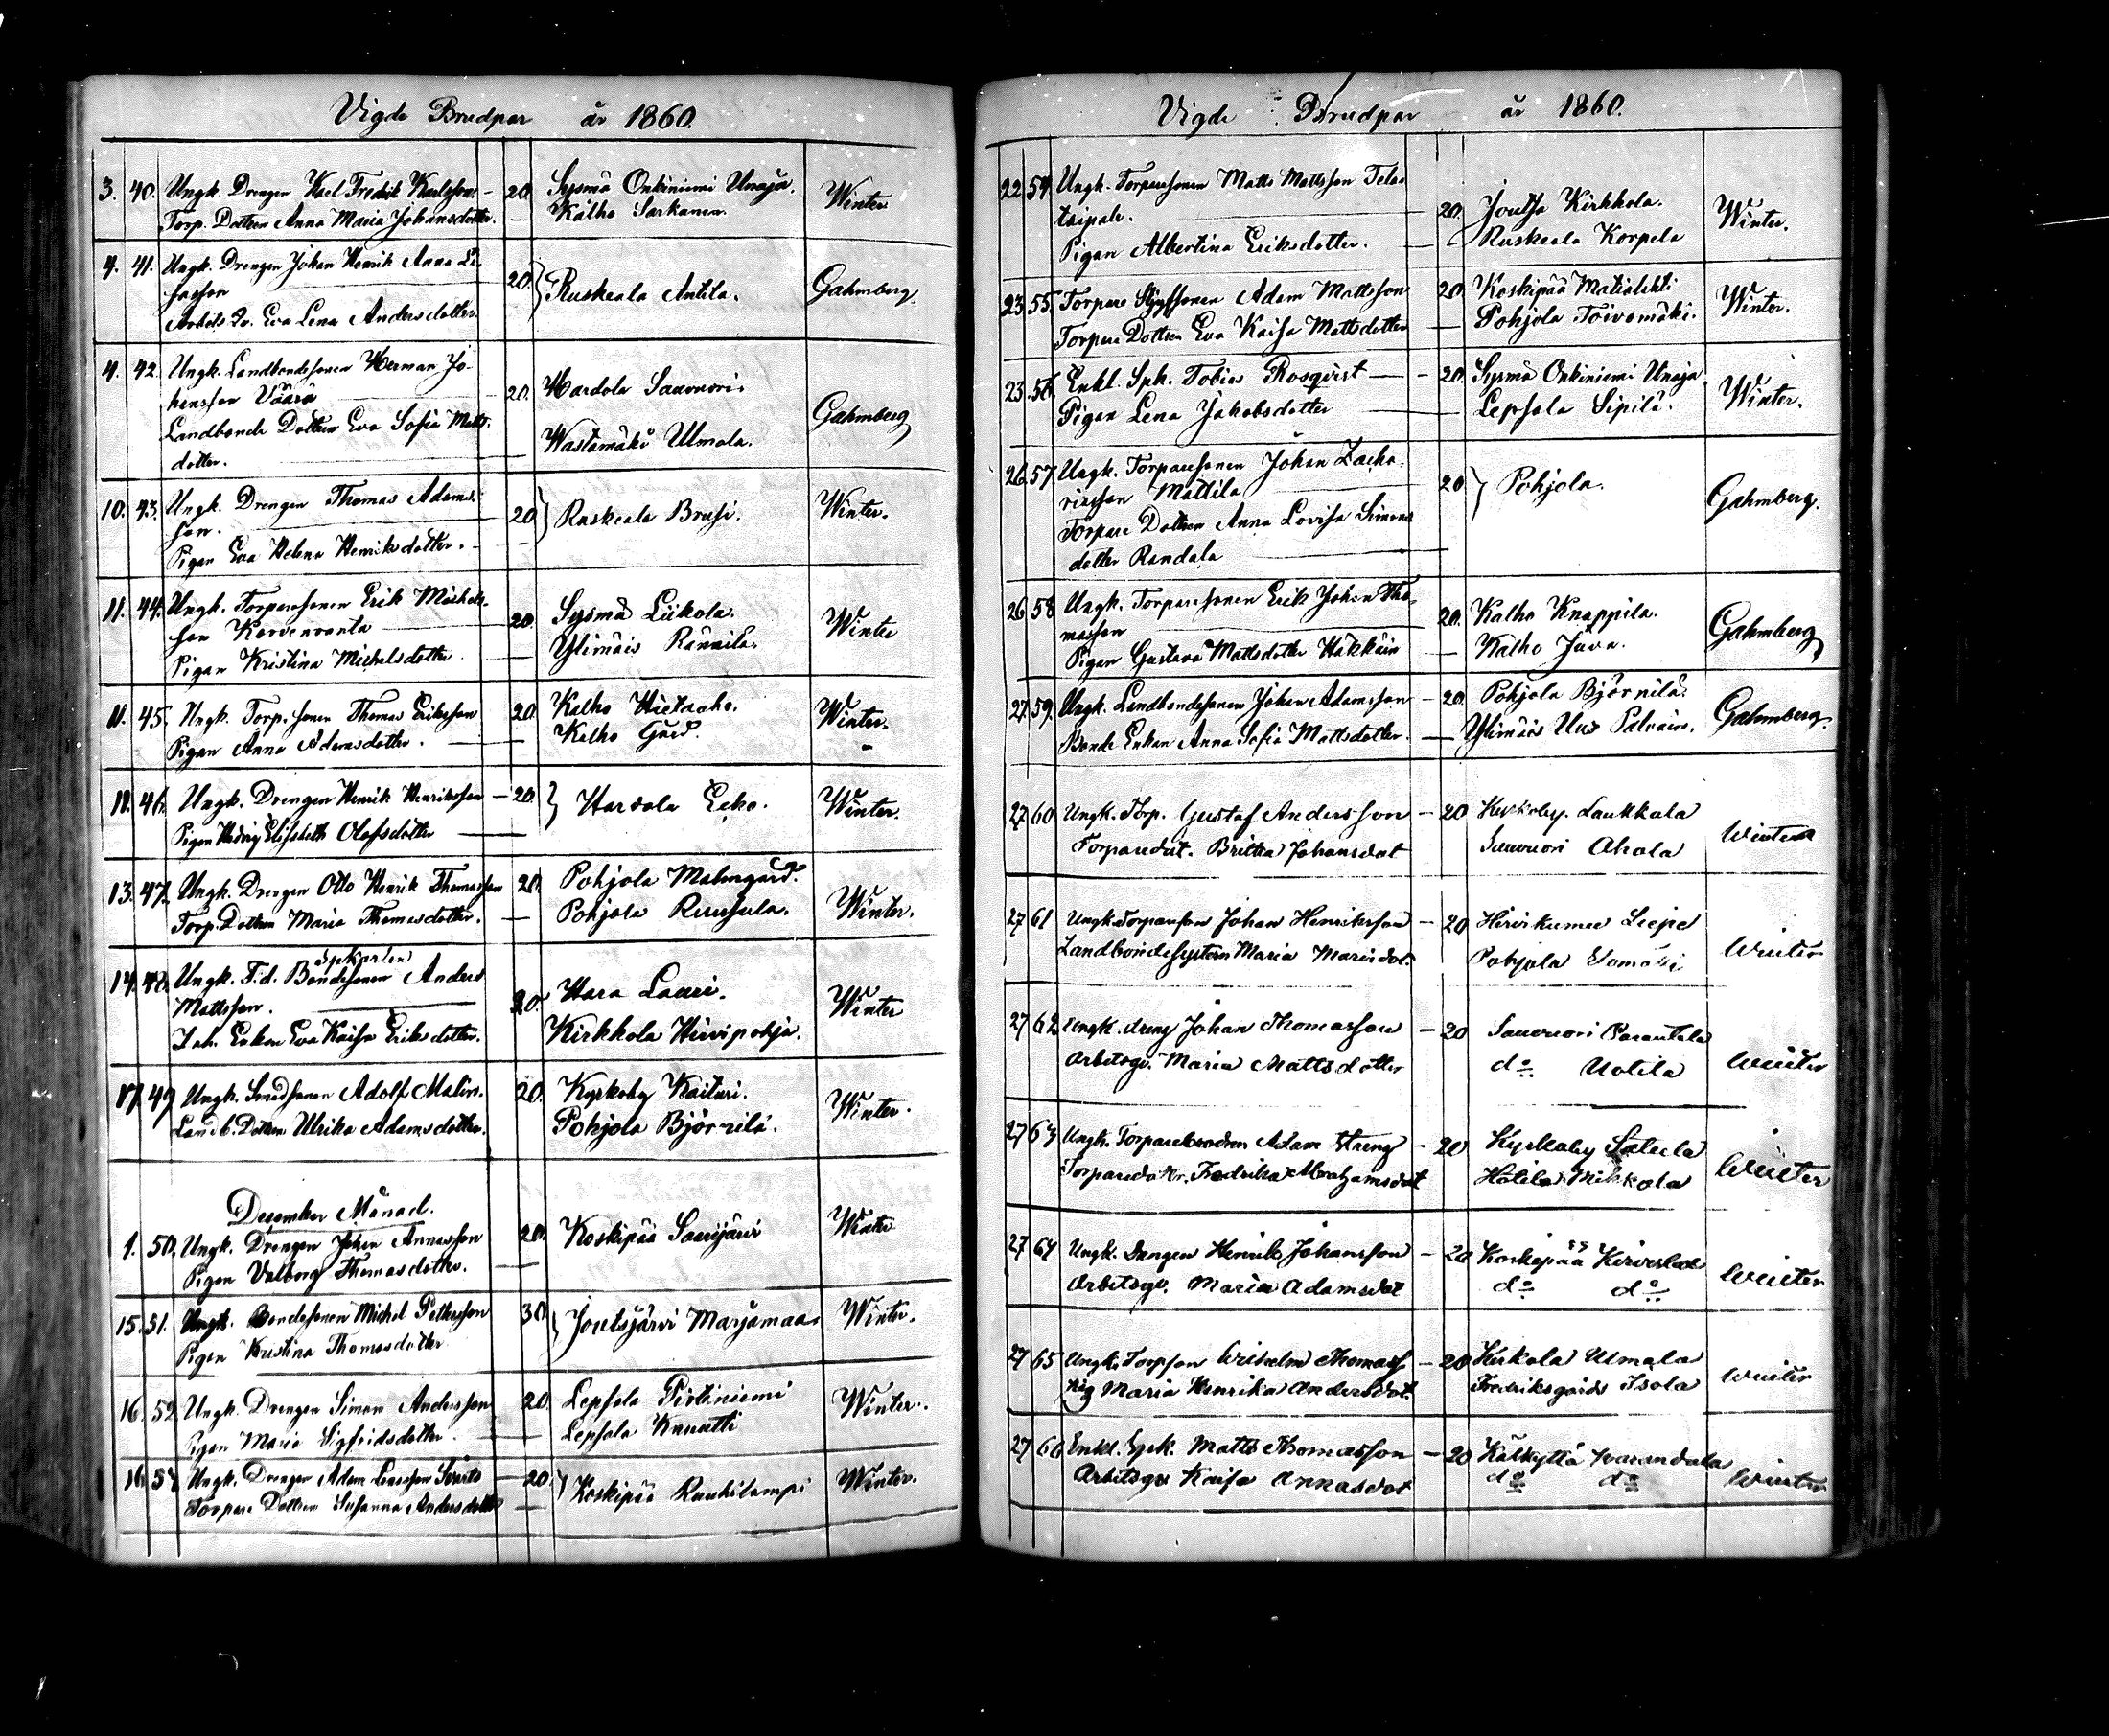 Vigde Brudpar år 1860.
3. 40. Ungk. Drengen Karl Fredrik Karlsson - 20. Sysmä Onkiniemi Unaja. Winter
Torp. Dottren Anna Maria Johansdotter. Kalho Sarkanen.
4. 41. Ungk. Drengen Johan Henrik Anna Li-
sasson 20. Ruskeala Anttila. Gahmberg.
Arbets Qv. Eva Lena Andersdotter
4. 42. Ungk. Landbondesonen Herman Jo-
hansson Väärä 20. Hardola Saunuori. Gahmberg
Landbonde Dottren Eva Sofia Matts- Wastamäki Ulmala.
dotter.
10. 43. Ungk. Drengen Thomas Adams-
son. 20 Ruskeala Brusi. Winter.
Pigan Eva Helena Henriksdotter.
11. 44. Ungk. Torparesonen Erik Michels-
son Korvenranta 20. Sysmä Liikola. Winter
Pigan Kristina Michelsdotter Ylimäis Rännilä.
11. 45. Ungk. Torp. sonen Thomas Eriksson 20. Kalho Hietaaho. Winter.
Pigan Anna Adamsdotter. Kalho Gård.
11. 46. Ungk. Drengen Henrik Henriksson - 20. Hardola Eeho. Winter.
Pigan Hedvig Elisabeth Olofsdotter
13. 47. Ungk. Drengen Otto Henrik Thomasson 20. Pohjola Malmgård. Winter.
Torp. Dottren Maria Thomasdotter. Pohjola Ruusula.
14. 48. Ungk. F.d. Bondesonen Anders
Mattsson. 20. Hara Lauri. Winter
Inh. Enkan Eva Kaisa Eriksdotter. Kirkkola Hirvipohja.
17. 49 Ungk. Smedsonen Adolf Malin. 20. Kyrkoby Kaituri. Winter.
Landb. Dottren Ulrika Adamsdotter. Pohjola Björnilä.
December Månad.
1. 50. Ungk. Drengen Johan Annasson 20. Koskipää Saarijärvi Winter
Pigan Valborg Thomasdotter.
15. 51. Ungk. Bondesonen Michel Pettersson 30. Joutsjärvi Marjamaa. Winter.
Pigan Kristina Thomasdotter
16. 52. Ungk. Drengen Simon Andersson 20. Lepsala Pirtiniemi Winter.
Pigan Maria Sigfridsdotter. Lepsala Knuutti
16. 53 Ungk. Drengen Adam - 20. Koskipää Ruuhilampi Winter.
Torpare Dottren Susanna Andersdotter
Vigde Brudpar år 1860.
22 54 Ungk. Torparesonen Matts Mattsson Telas
taipale. 20. Joutsa Kirkkola. Winter.
Pigan Albertina Eriksdotter. Ruskeala Korpela
23 55. Torpare Styfsonen Adam Mattsson 20. Koskipää Matialehti Winter.
Torpare Dottren Eva Kaisa Mattsdotter Pohjola Toivomäki.
23. 56. Enkl. Sph. Tobias Rosqvist - 20. Sysmä Onkiniemi Unaja Winter.
Pigan Lena Jakobsdotter Lepsala Sipilä.
26. 57. Ungk. Torparesonen Johan Zacha-
riasson Mattila 20 Pohjola. Gahmberg.
Torpare Dottren Anna Lovisa Simons
dotter Randala
26 58 Ungk. Torparesonen Erik Johan Tho-
masson 20. Kalho Knappila. Gahmberg
Pigan Gustava Mattsdotter Häkkäin Kalho Java.
27. 59. Ungk. Landbondesonen Johan Adamsson - 20. Pohjola Björnilä. Gahmberg.
Bonde Enkan Anna Sofia Mattsdotter. Ylimäis Uus Palvain.
27 60 Ungk. Torp. Gustaf Andersson - 20 Kyrkoby. Laukkala Winter
Torparedot. Britha Johansdot Saunuori Ahola
27 61 Ungk. Torpareson Johan Henriksson - 20 Winter
Landbondesystern Maria Marisdot. Pohjola
27 62 Ungk. dreng Johan Thomasson - 20 Saunuori Parantala Winter
Arbetsqv. Maria Mattsdotter do Uotila
27 63 Ungk. Torparebrodren Adam Streng - 20 Kyrkoby Winter
Torparedottr. Fredrika Abrahamsdot Hotila Mikkola
27 64 Ungk. Drengen Henrik Johansson - 20 Koskipää Winter
Arbetsqv. Maria Adamsdot do do
27 65 Ungk. Torpson Wilhelm Thomass - 20 Kirkola Ulmala Winter
Pig Maria Henrika Andersdot. Fredriksgårds Isola
27 66 Enkl. Spk. Matts Thomasson - 20 Kälkyttä Winter
Arbetsqv Kaisa Annasdot do do